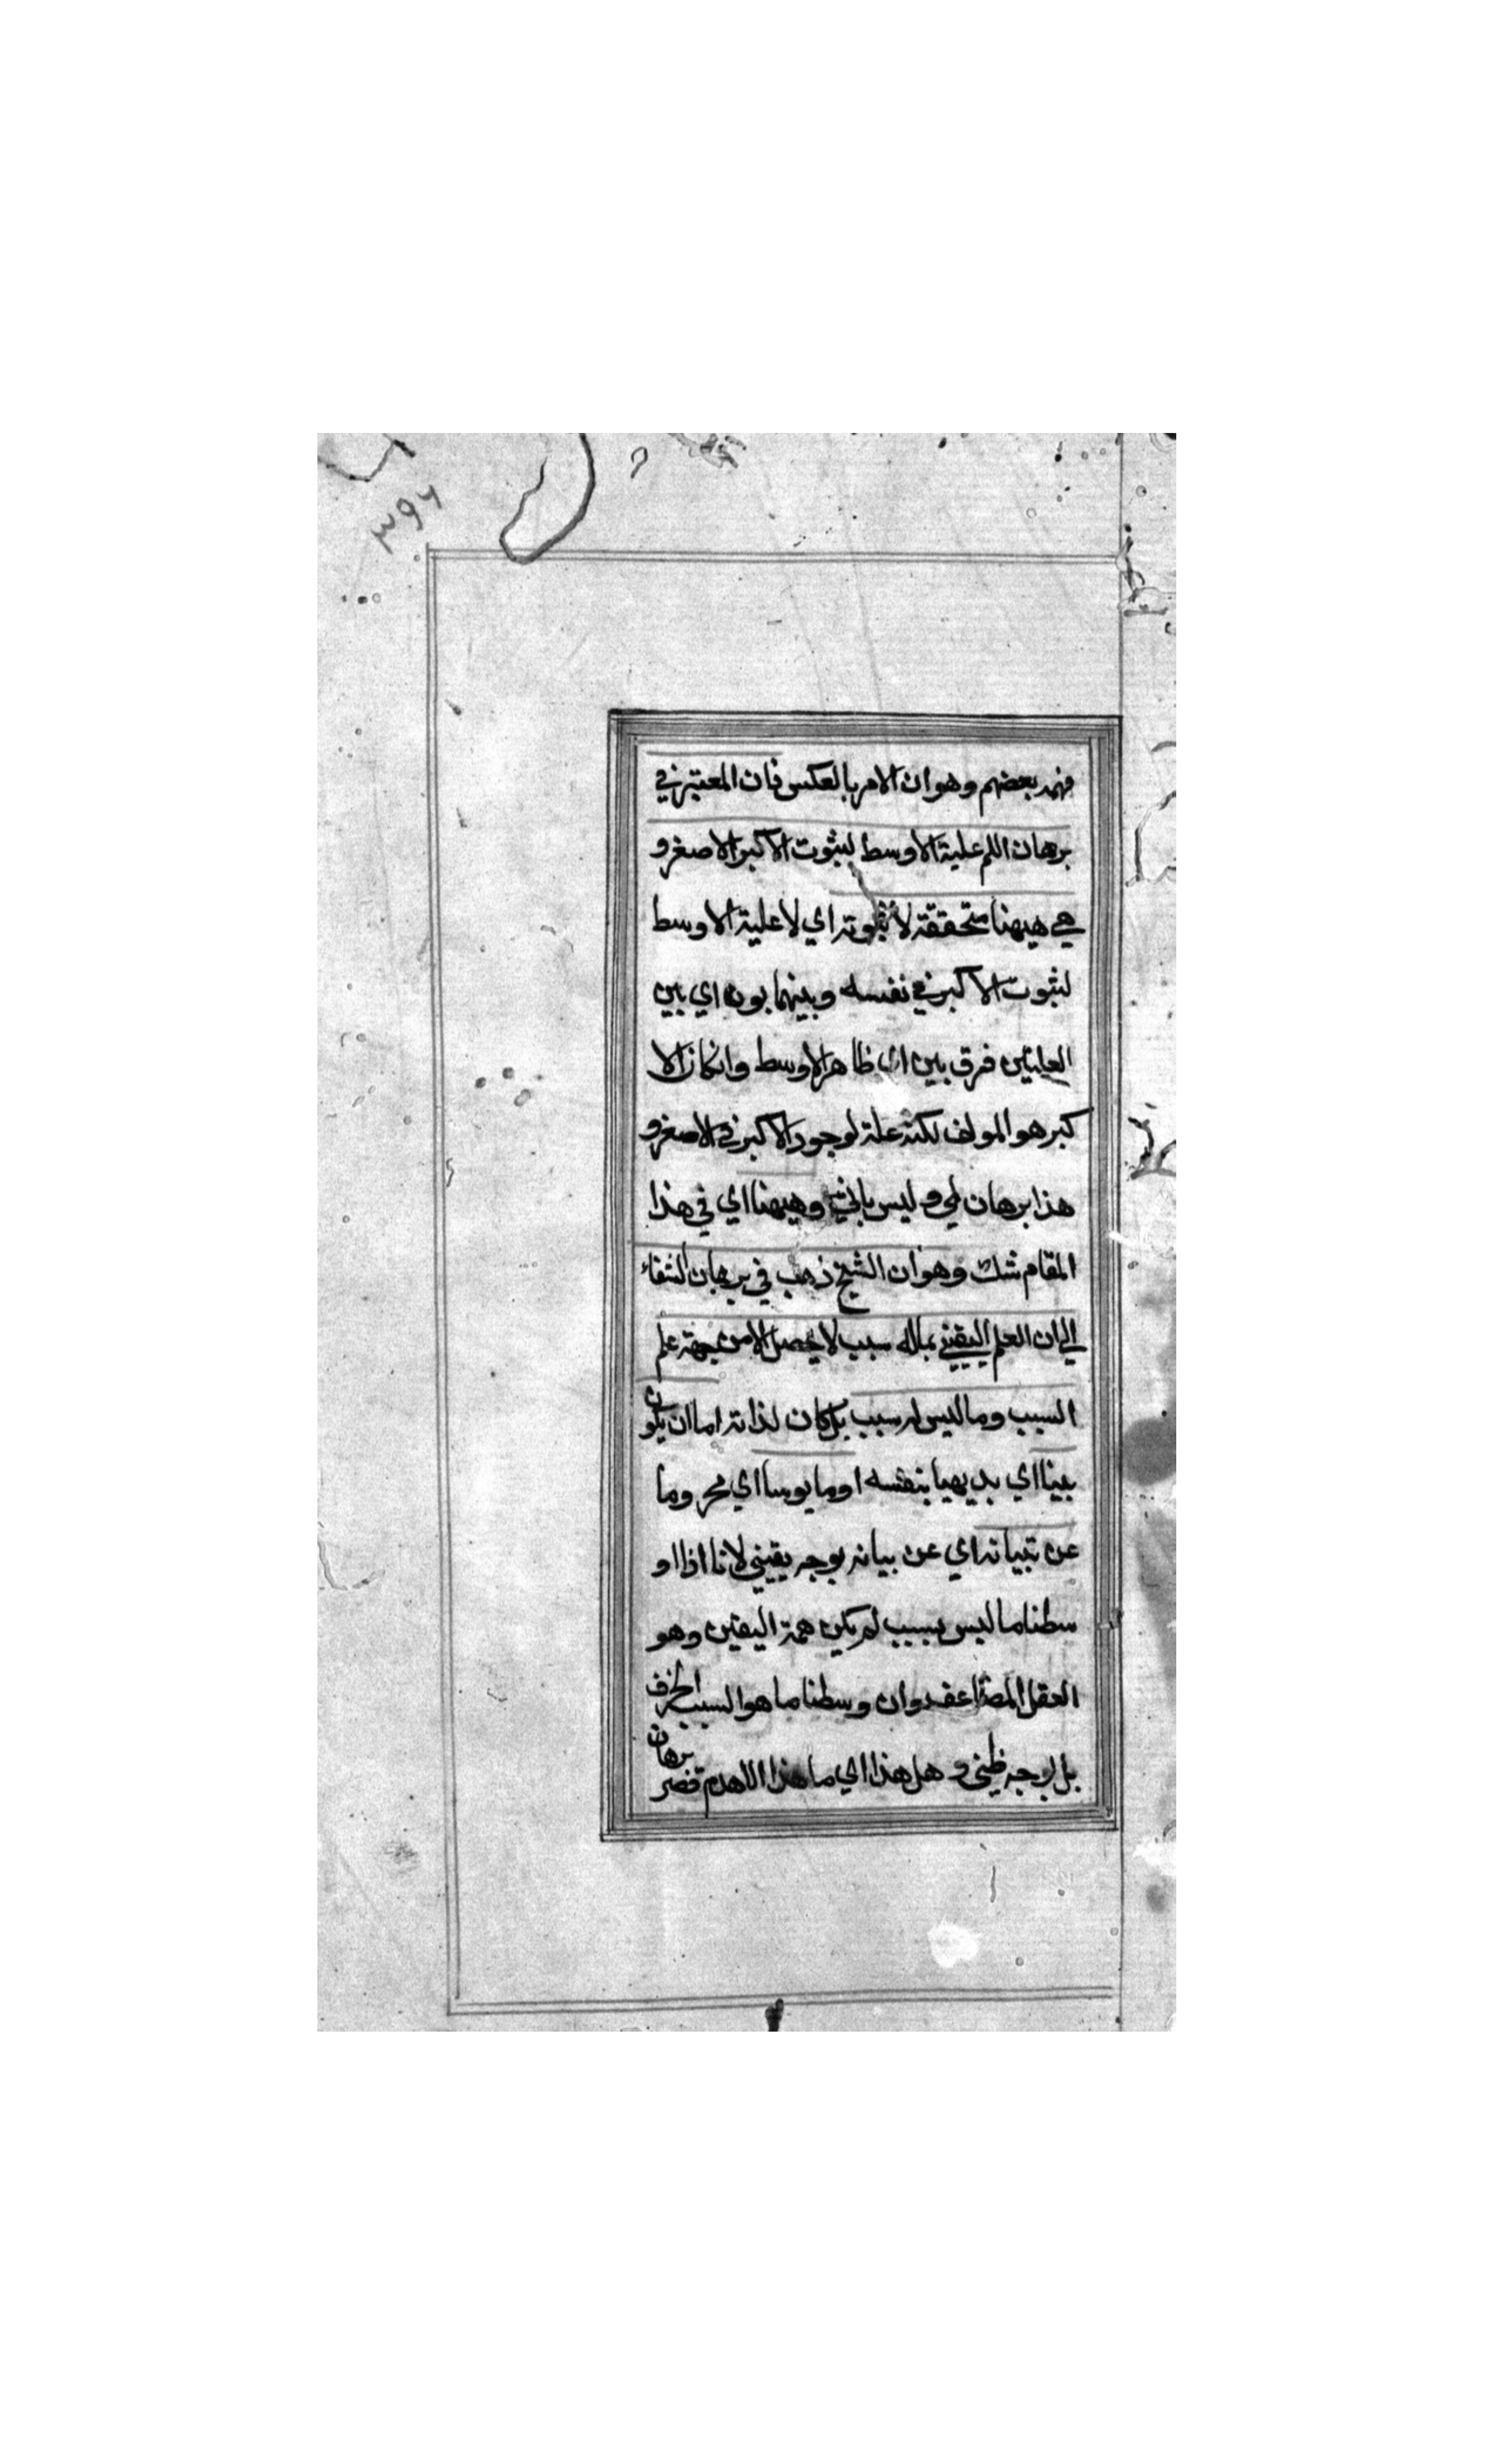 ٣٩٦
فهمه بعضهم وهو ان الامر بالعكس فان المعتبر في
برهان اللم علية الاوسط لثبوت الاكبر للاصغر و
هي هيهنا متحققة لا ثبوته اي لا علية الاوسط
لثبوت الاكبر في نفسه وبينهما بون اي بين
العليتين فرق بين اي ظاهر الاوسط وانكان الا
كبر هو المولف لكنه علة لوجود الاكبر في الاصغر و
هذا برهان لمي وليس باني وهيهنا اي في هذا
المقام شك وهو ان الشيخ ذهب في برهان الشفاء
الي ان العلم اليقيني بماله سبب لا يحصل الا من جهة علم
السبب وما ليس له سبب بل كان لذاته اما ان يكون
بينا اي بديهيا بنفسه او مايوسا اي محروما
عن تبيانه اي عن بيانه بوجه يقيني لانا اذا او
سطنا ما ليس بسبب لم يكن همة اليقين وهو
العقل وان وسطنا ما هو السبب
بل بوجه ظني و هل هذا اي ما هذا الا هدم قصر برهان